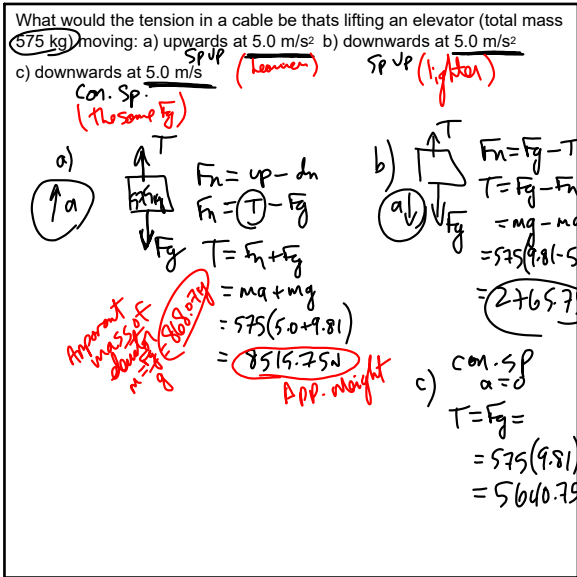 What would the tension in a cable be thats lifting an elevator (total mass
575 kg) moving: a) upwards at 5.0 m/s² b) downwards at 5.0 m/s²
c) downwards at 5.0 m/s
sp up
(heavier)
sp up (lighter)
Con. Sp.
(the same Fg)
a)
↑a
T
575kg
Fg
Fn = up - dn
Fn = T - Fg
T = Fn + Fg
= ma + mg
= 575(5.0+9.81)
= 8515.75N
App. weight
Apparent
mass of
m = Fg/g
= 868.07kg
b)
a↓
T
Fg
Fn = Fg - T
T = Fg - Fn
= mg - ma
= 575(9.81-5
= 2765.75
c)
con. sp
a = 0
T = Fg =
= 575(9.81)
= 5640.75